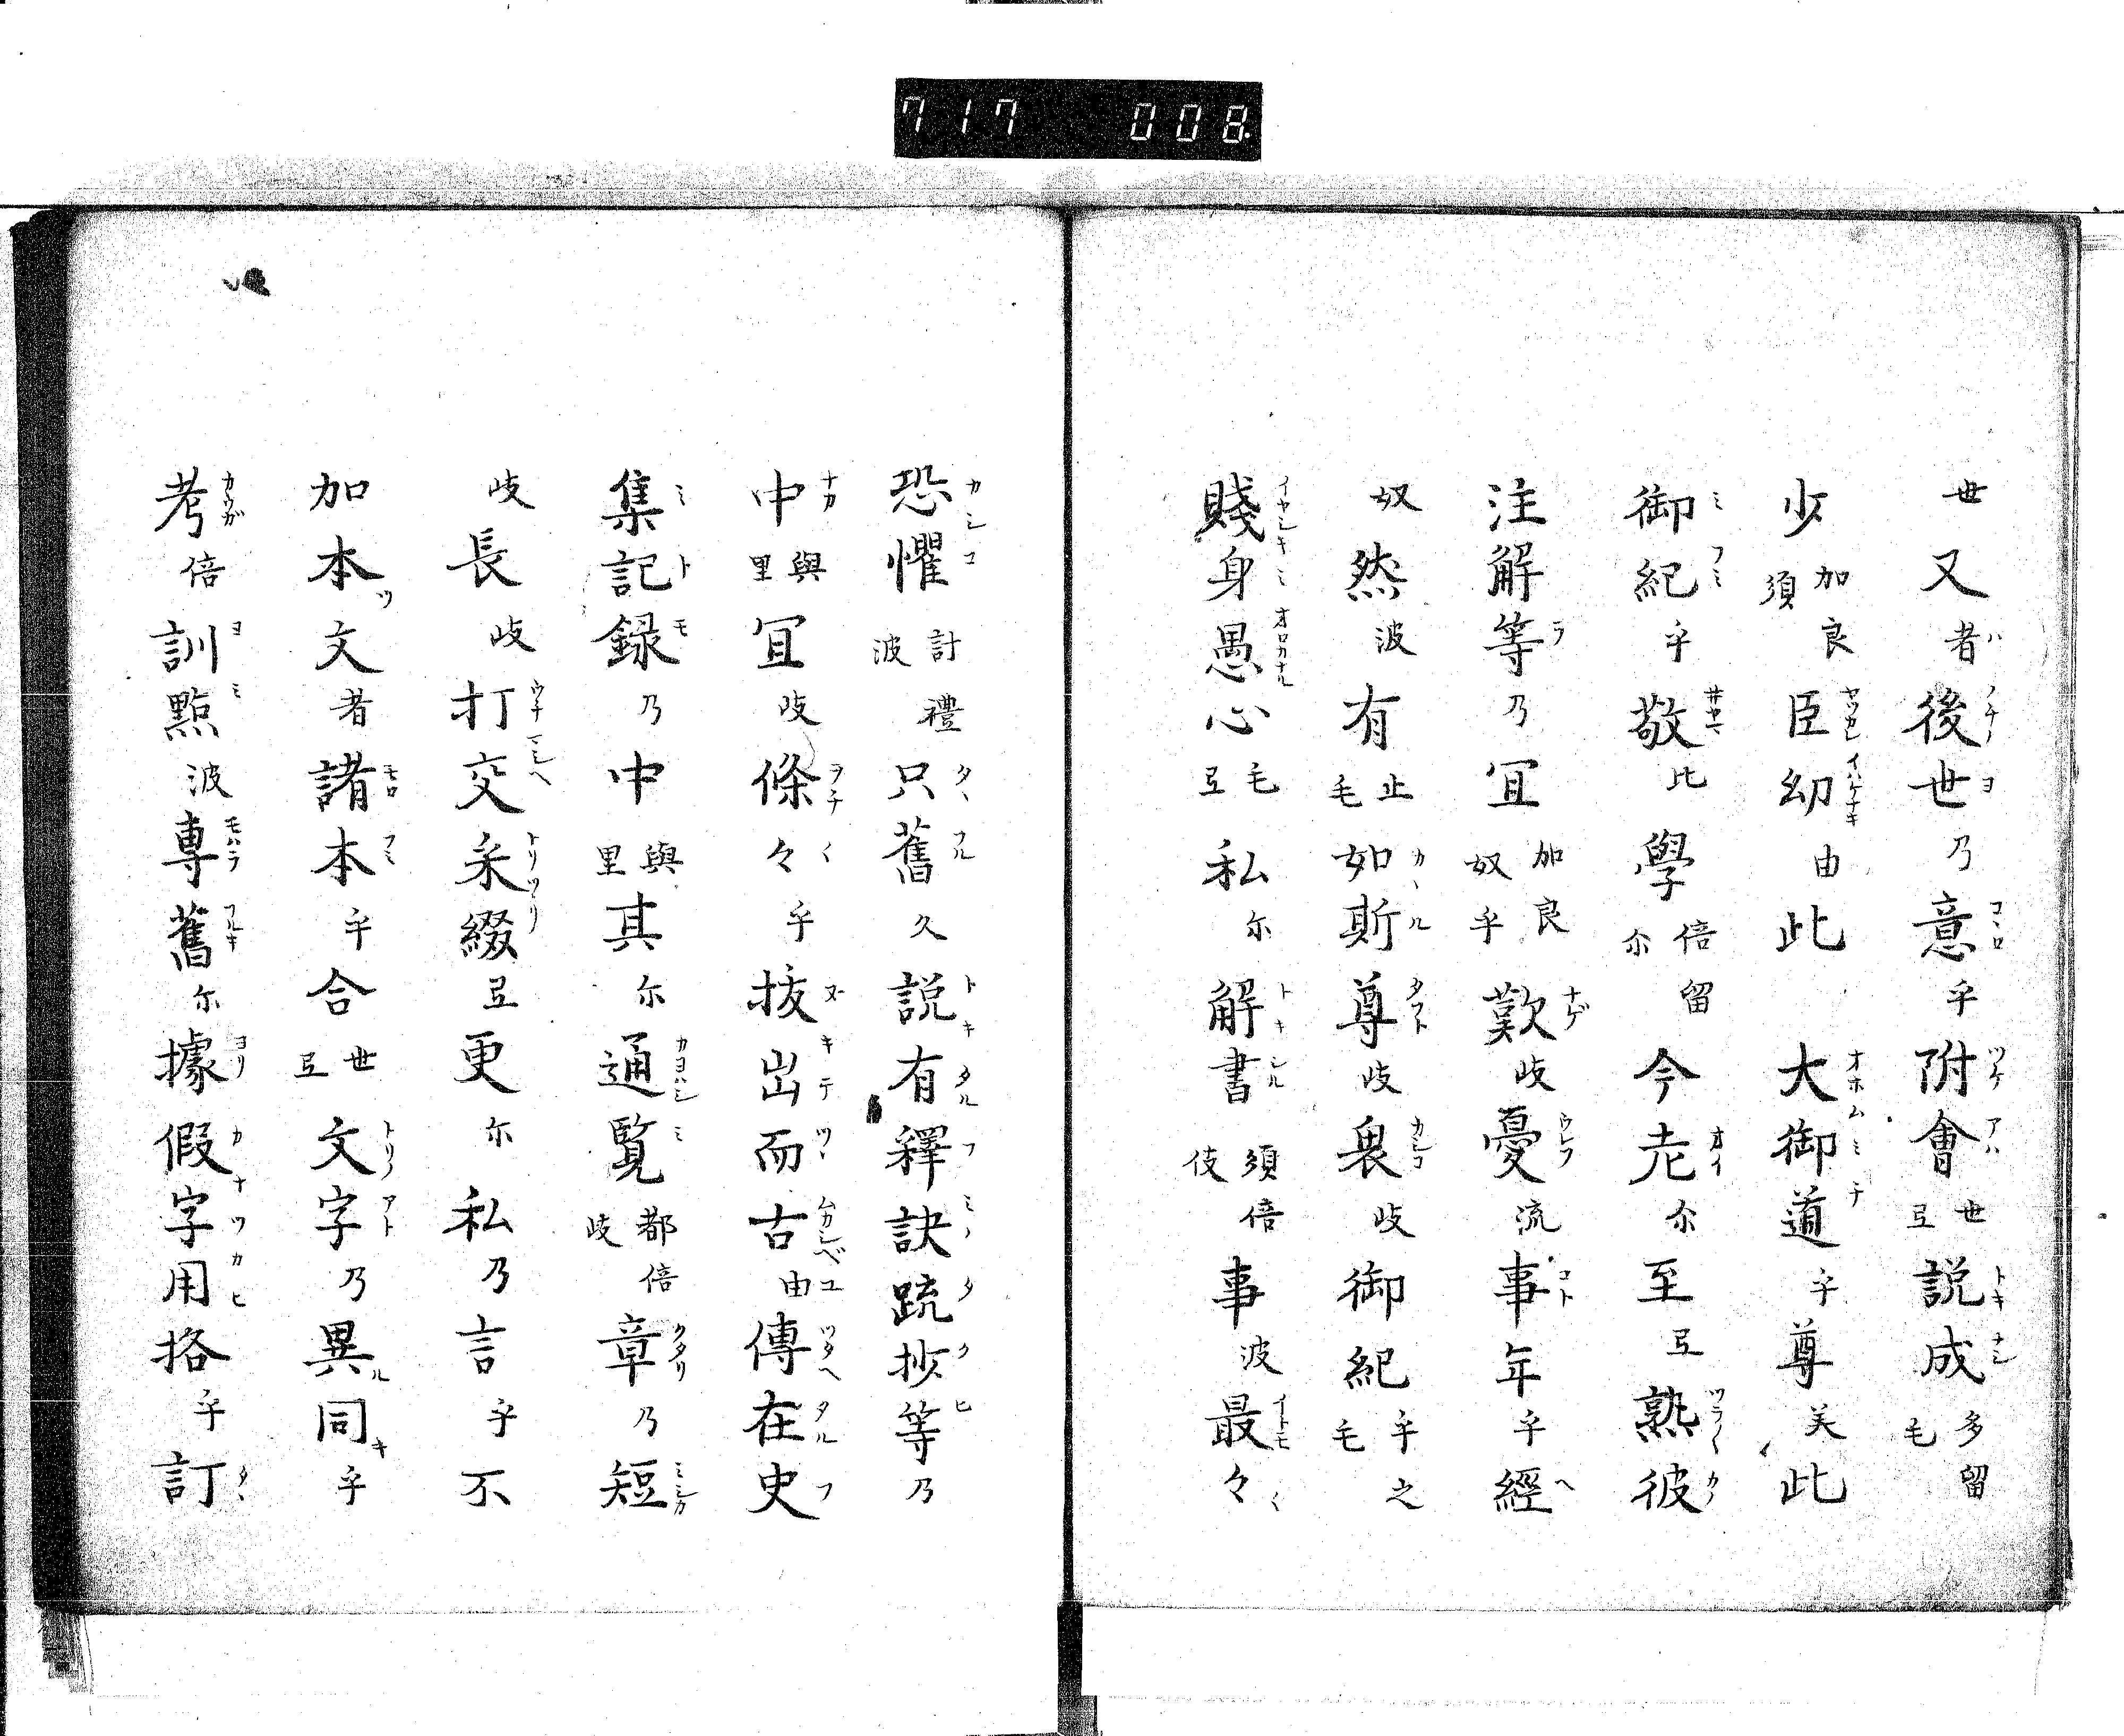 717 008
世又者後世乃意乎附會世弖説成多留毛
少加良須臣幼由此 大御道乎尊美此
御紀乎敬比學倍留尓今老尓至弖熟彼
注解等乃冝加良奴乎歎岐憂流事年乎經
奴然波有止毛如斯尊岐畏岐御紀乎之毛
賤身愚心毛弖私尓解書須倍伎事波最々
恐懼計禮波只舊久説有釋訣䟽抄等乃
中與里冝岐條々乎抜出而古由傳在史
集記録乃中與里其尓通覧都倍岐章乃短
岐長岐打交采綴弖更尓私乃言乎不
加本文者諸本乎合世弖文字乃異同乎
考倍訓點波専舊尓據假字用格乎訂